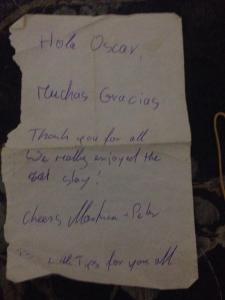 Hola Oscar,
Muchas Gracias
Thank you for all
We really enjoyed the
stay!
Cheers
Tips for you all